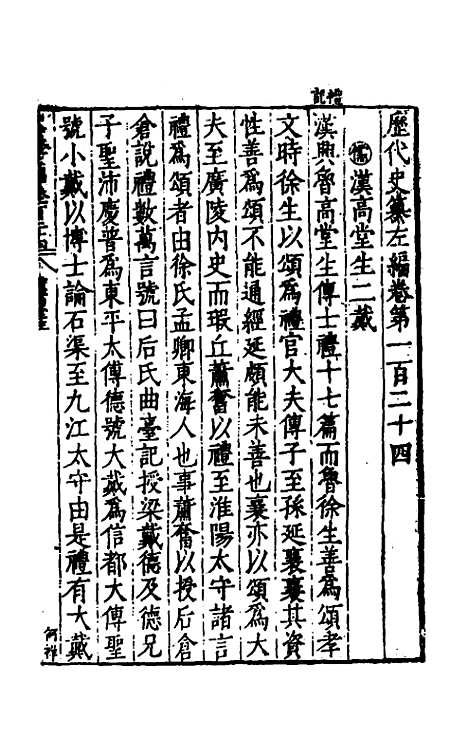 歷代史纂左編卷第一百二十四
儒 漢高堂生二戴
禮記
漢興魯高堂生傳士禮十七篇而魯徐生善為頌孝
文時徐生以頌為禮官大夫傳子至孫延襄襄其資
性善為頌不能通經延頗能未善也襄亦以頌為大
夫至廣陵内史而瑕丘蕭奮以禮至淮陽太守諸言
禮為頌者由徐氏孟卿東海人也事蕭奮以授后倉
倉說禮數萬言號曰后氏曲臺記授梁戴德及德兄
子聖沛慶普為東平太傅德號大戴為信都太傅聖
號小戴以博士論石渠至九江太守由是禮有大戴
何祥